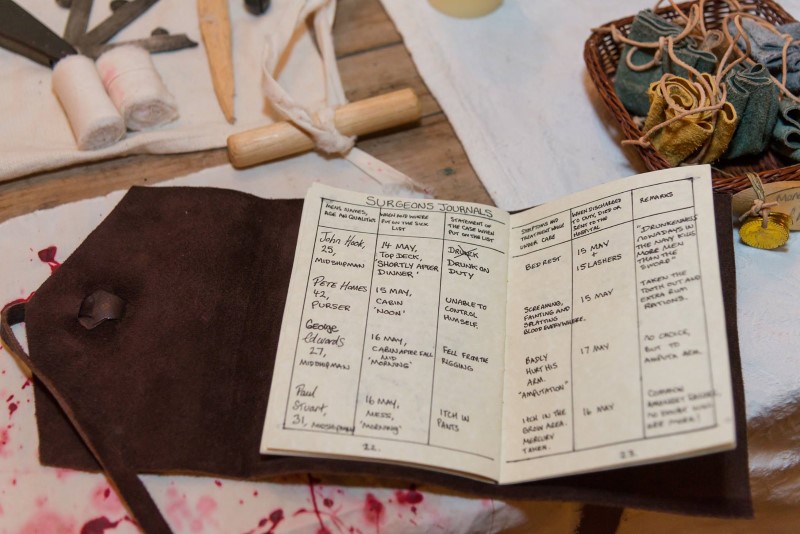 SURGEONS JOURNALS
MENS NAMES,
AGE AN QUALITIES
WHEN AND WHERE
PUT ON THE SICK
LIST
STATEMENT OF
THE CASE WHEN
PUT ON THE LIST
John Hook,
25,
MIDSHIPMAN
14 MAY,
TOP DECK,
"SHORTLY AFTER
DINNER"
DRUNK ON
DUTY
PETE HOMES
42,
PURSER
15 MAY,
CABIN
"NOON"
UNABLE TO
CONTROL
HIMSELF.
George
Edwards
27,
MIDSHIPMAN
16 MAY,
CABIN AFTER FALL
MID
"MORNING"
FELL FROM THE
RIGGING
Paul
Stuart,
31, MIDSHIPMAN
16 MAY,
MESS,
"MORNING"
ITCH IN
PANTS
22.
SYMPTOMS AND
TREATMENT WHEN
UNDER CARE
WHEN DISCHARGED
TO DUTY, DIED OR
SENT TO THE
HOSPITAL
REMARKS
BED REST
15 MAY
+
15 LASHERS
"DRUNKENNESS
NOWADAYS IN
THE NAVY KILLS
MORE MEN
THAN THE
SWORD"
SCREAMING,
FAINTING AND
SPLATTING
BLOOD EVERYWHERE.
15 MAY
TAKEN THE
TOOTH OUT AND
EXTRA RUM
RATIONS.
BADLY
HURT HIS
ARM.
"AMPUTATION"
17 MAY
NO CHOICE,
BUT TO
AMPUTA ARM.
ITCH IN THE
GROIN AREA.
MERCURY
TAKEN.
16 MAY
COMMON
23.